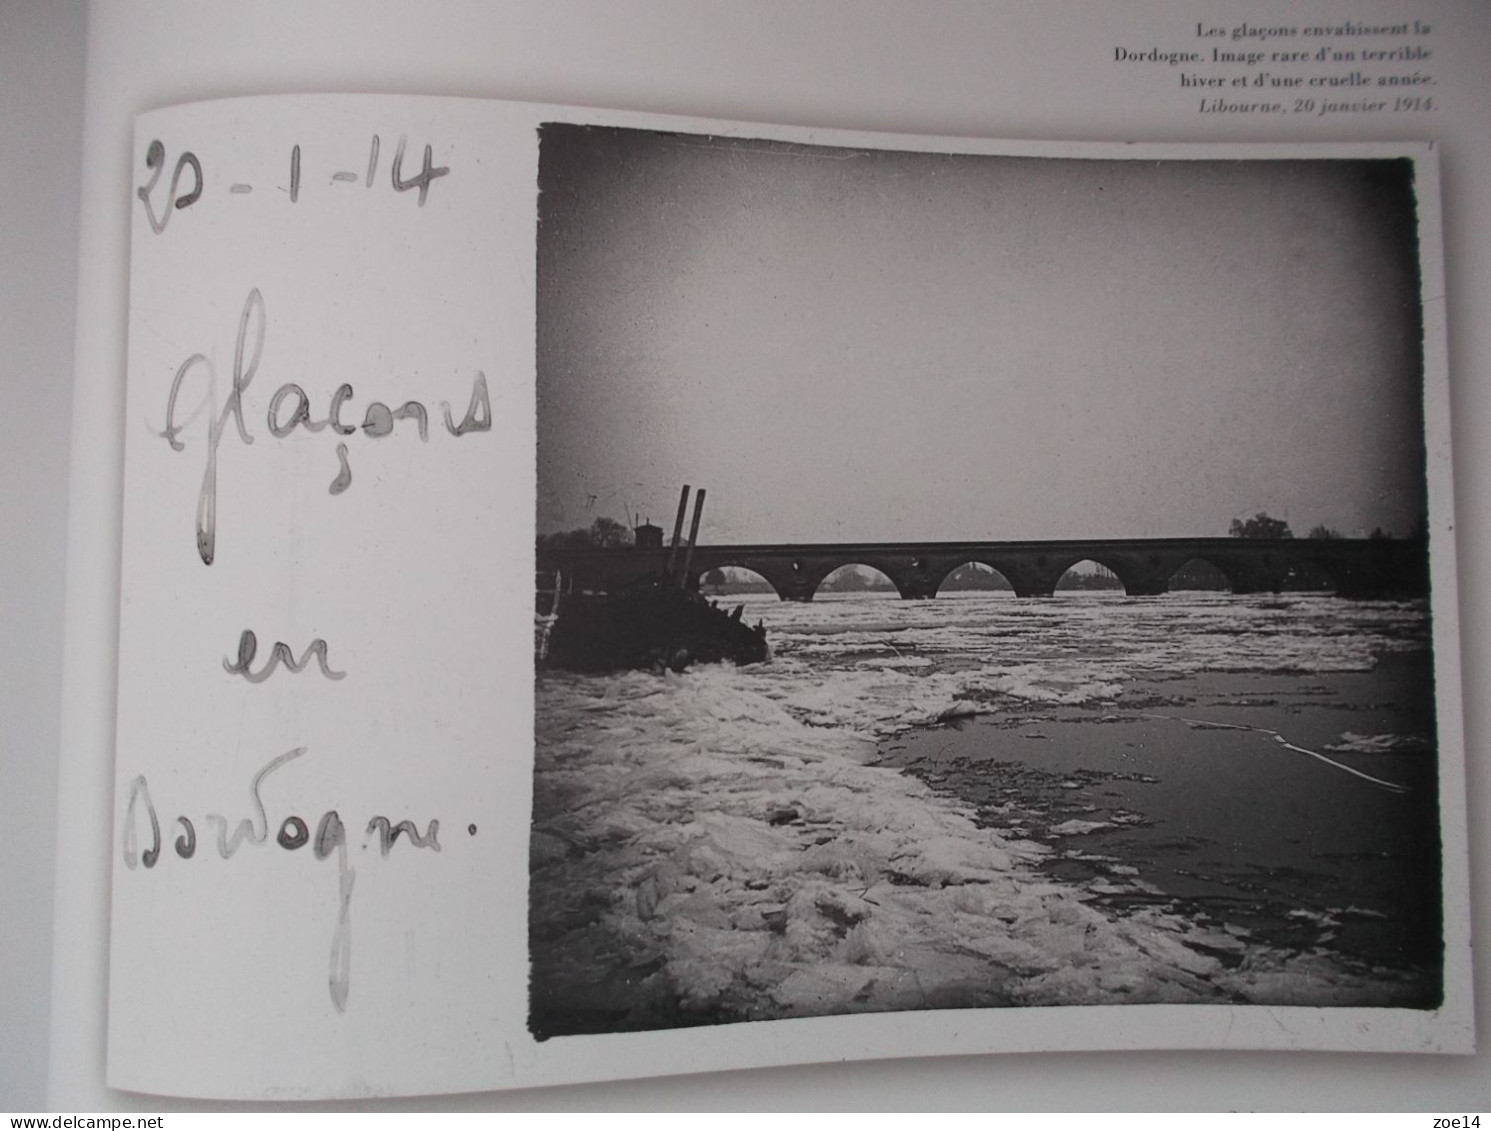 Les glaçons envahissent la
Dordogne. Image rare d'un terrible
hiver et d'une cruelle année.
Libourne, 20 janvier 1914.
20-1-14
glaçons
en
Dordogne.
www.delcampe.net
zoe14